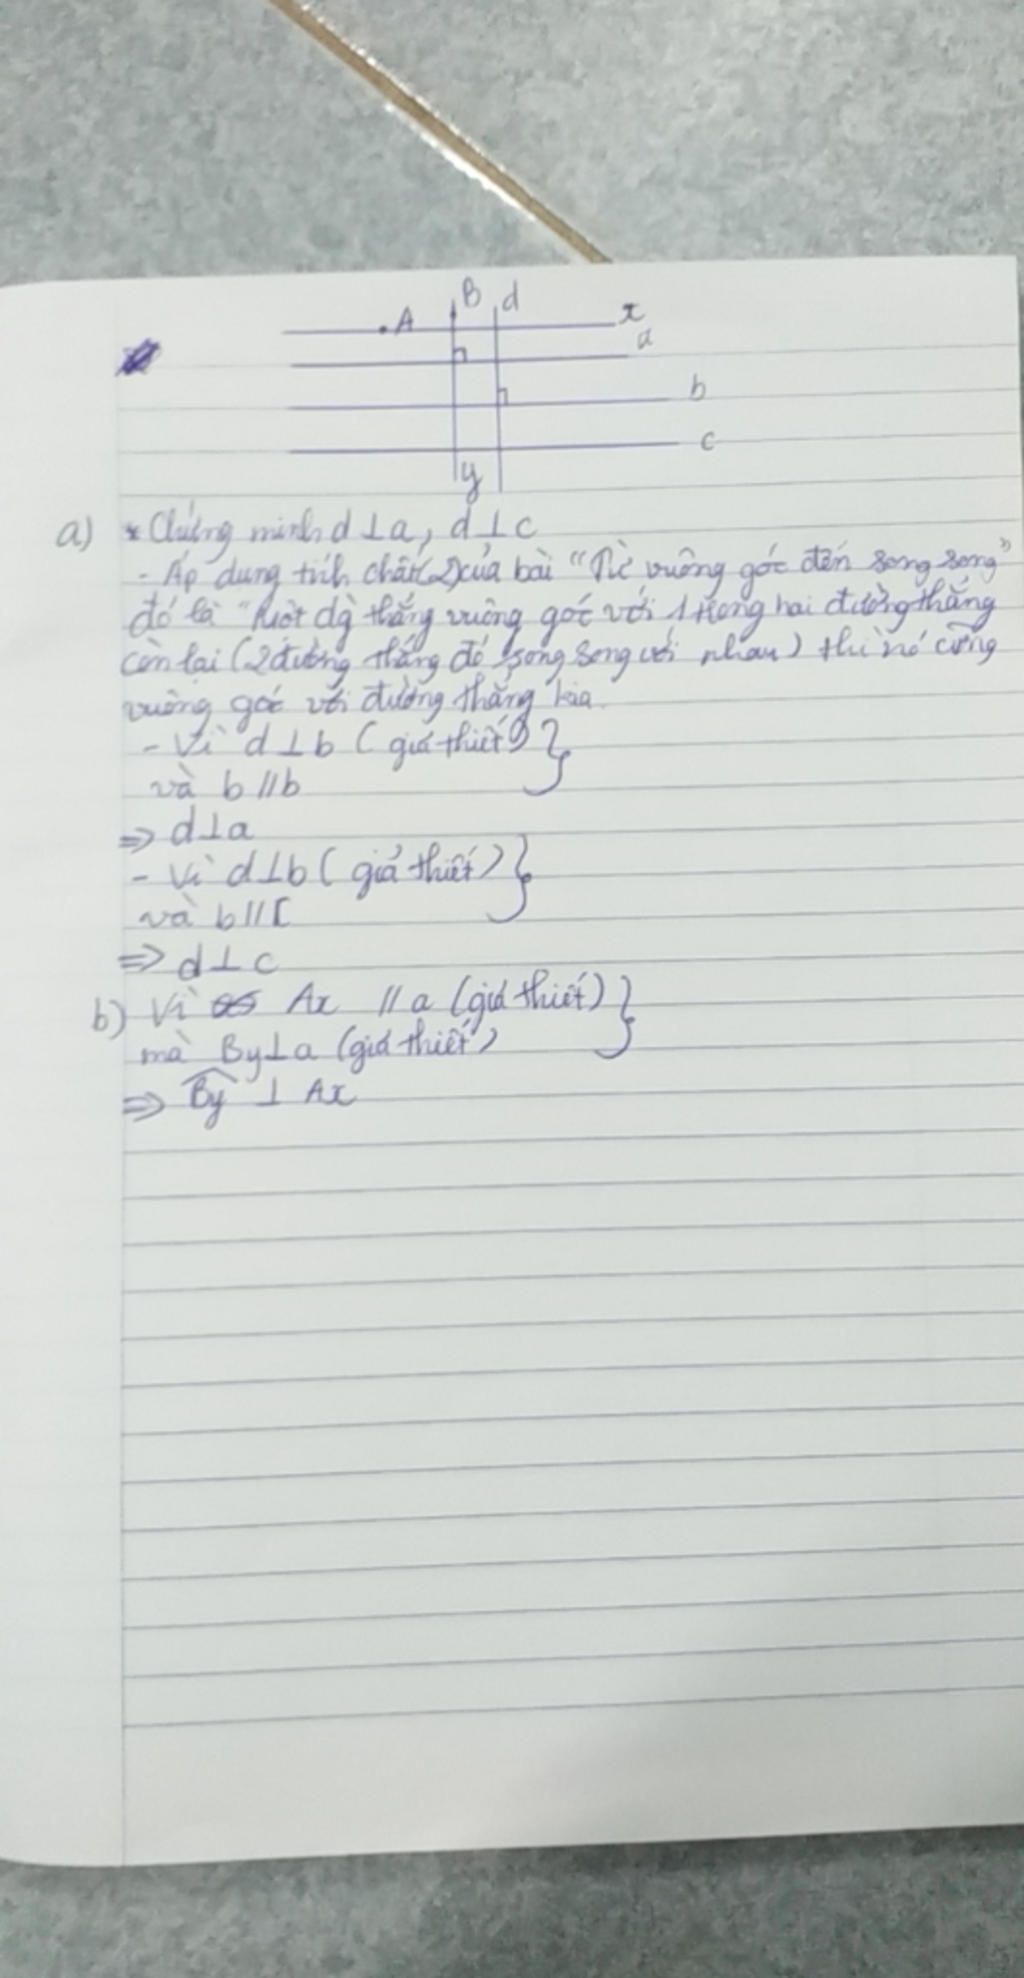 B d
A x
a
b
c
y
a) * Chứng minh d⊥a, d⊥c
- Áp dụng tính chất (2) của bài "Từ vuông góc đến song song"
đó là "Một dg thẳng vuông góc với 1 trong hai đường thẳng
còn lại (2 đường thẳng đó song song với nhau) thì nó cũng
vuông góc với đường thẳng kia.
- Vì d⊥b (giả thiết)}
và b//b
=> d⊥a
- Vì d⊥b (giả thiết)}
và b//c
=> d⊥c
b) Vì Ax //a (giả thiết)}
mà By⊥a (giả thiết)
=> By ⊥ Ax